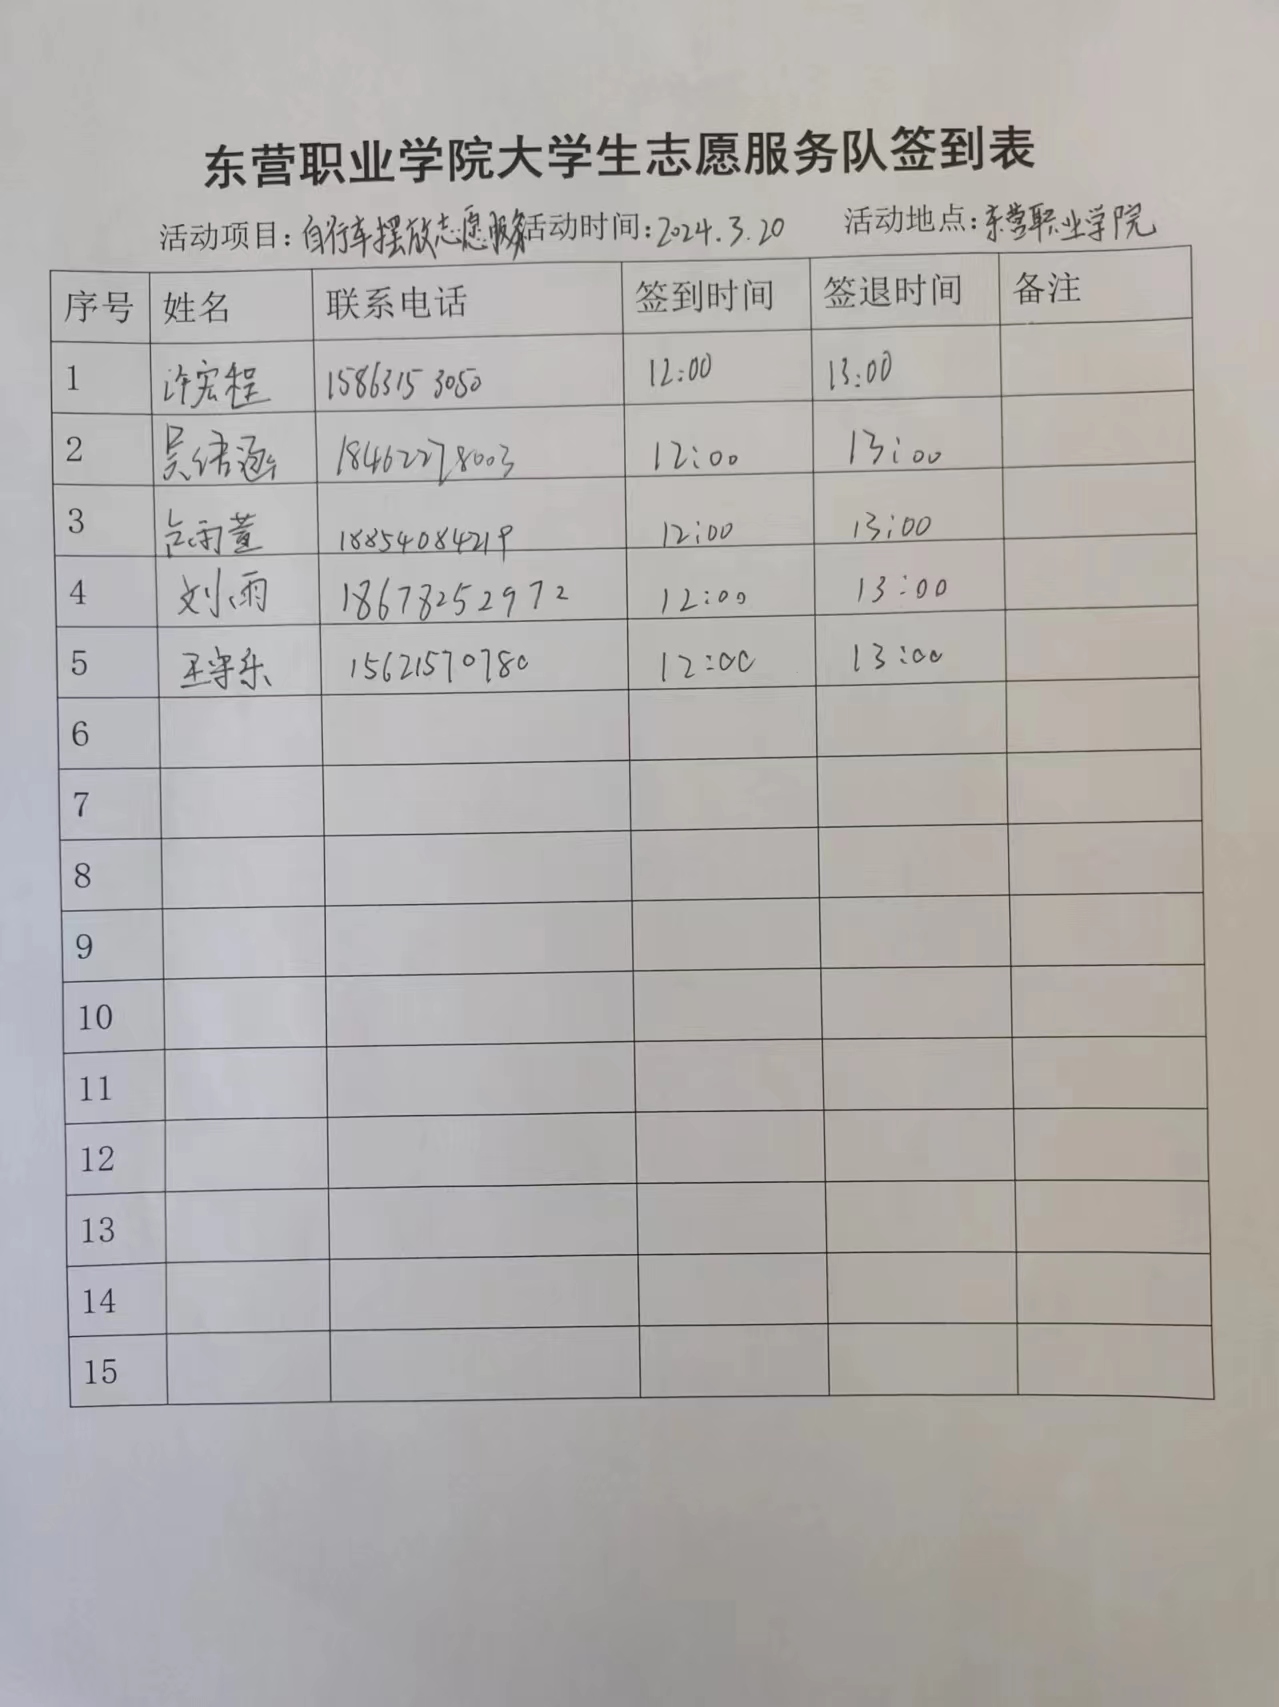 东营职业学院大学生志愿服务队签到表
活动项目：自行车摆放志愿服务 活动时间：2024.3.20 活动地点：东营职业学院
序号 姓名 联系电话 签到时间 签退时间 备注
1 许宏程 15863153050 12:00 13:00
2 吴 涵 18462278003 12:00 13:00
3 雨萱 18854084219 12:00 13:00
4 刘雨 18678252972 12:00 13:00
5 王守乐 15621570780 12:00 13:00
6
7
8
9
10
11
12
13
14
15